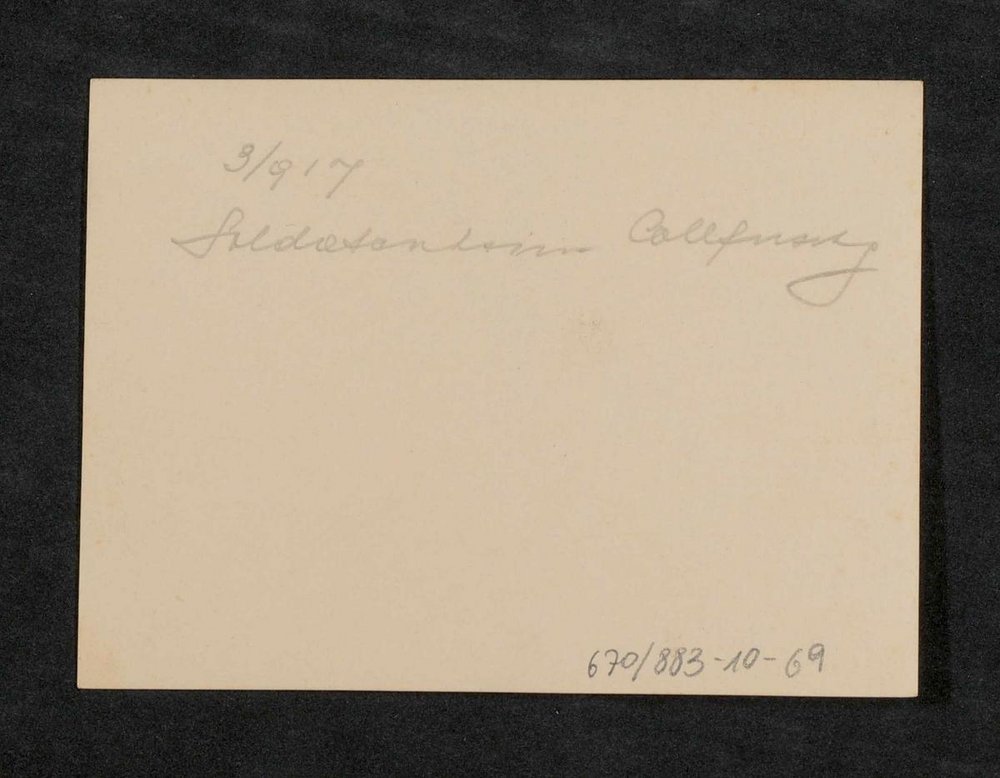 3/917
Soldatenheim Collfuschg
670/883-10-69